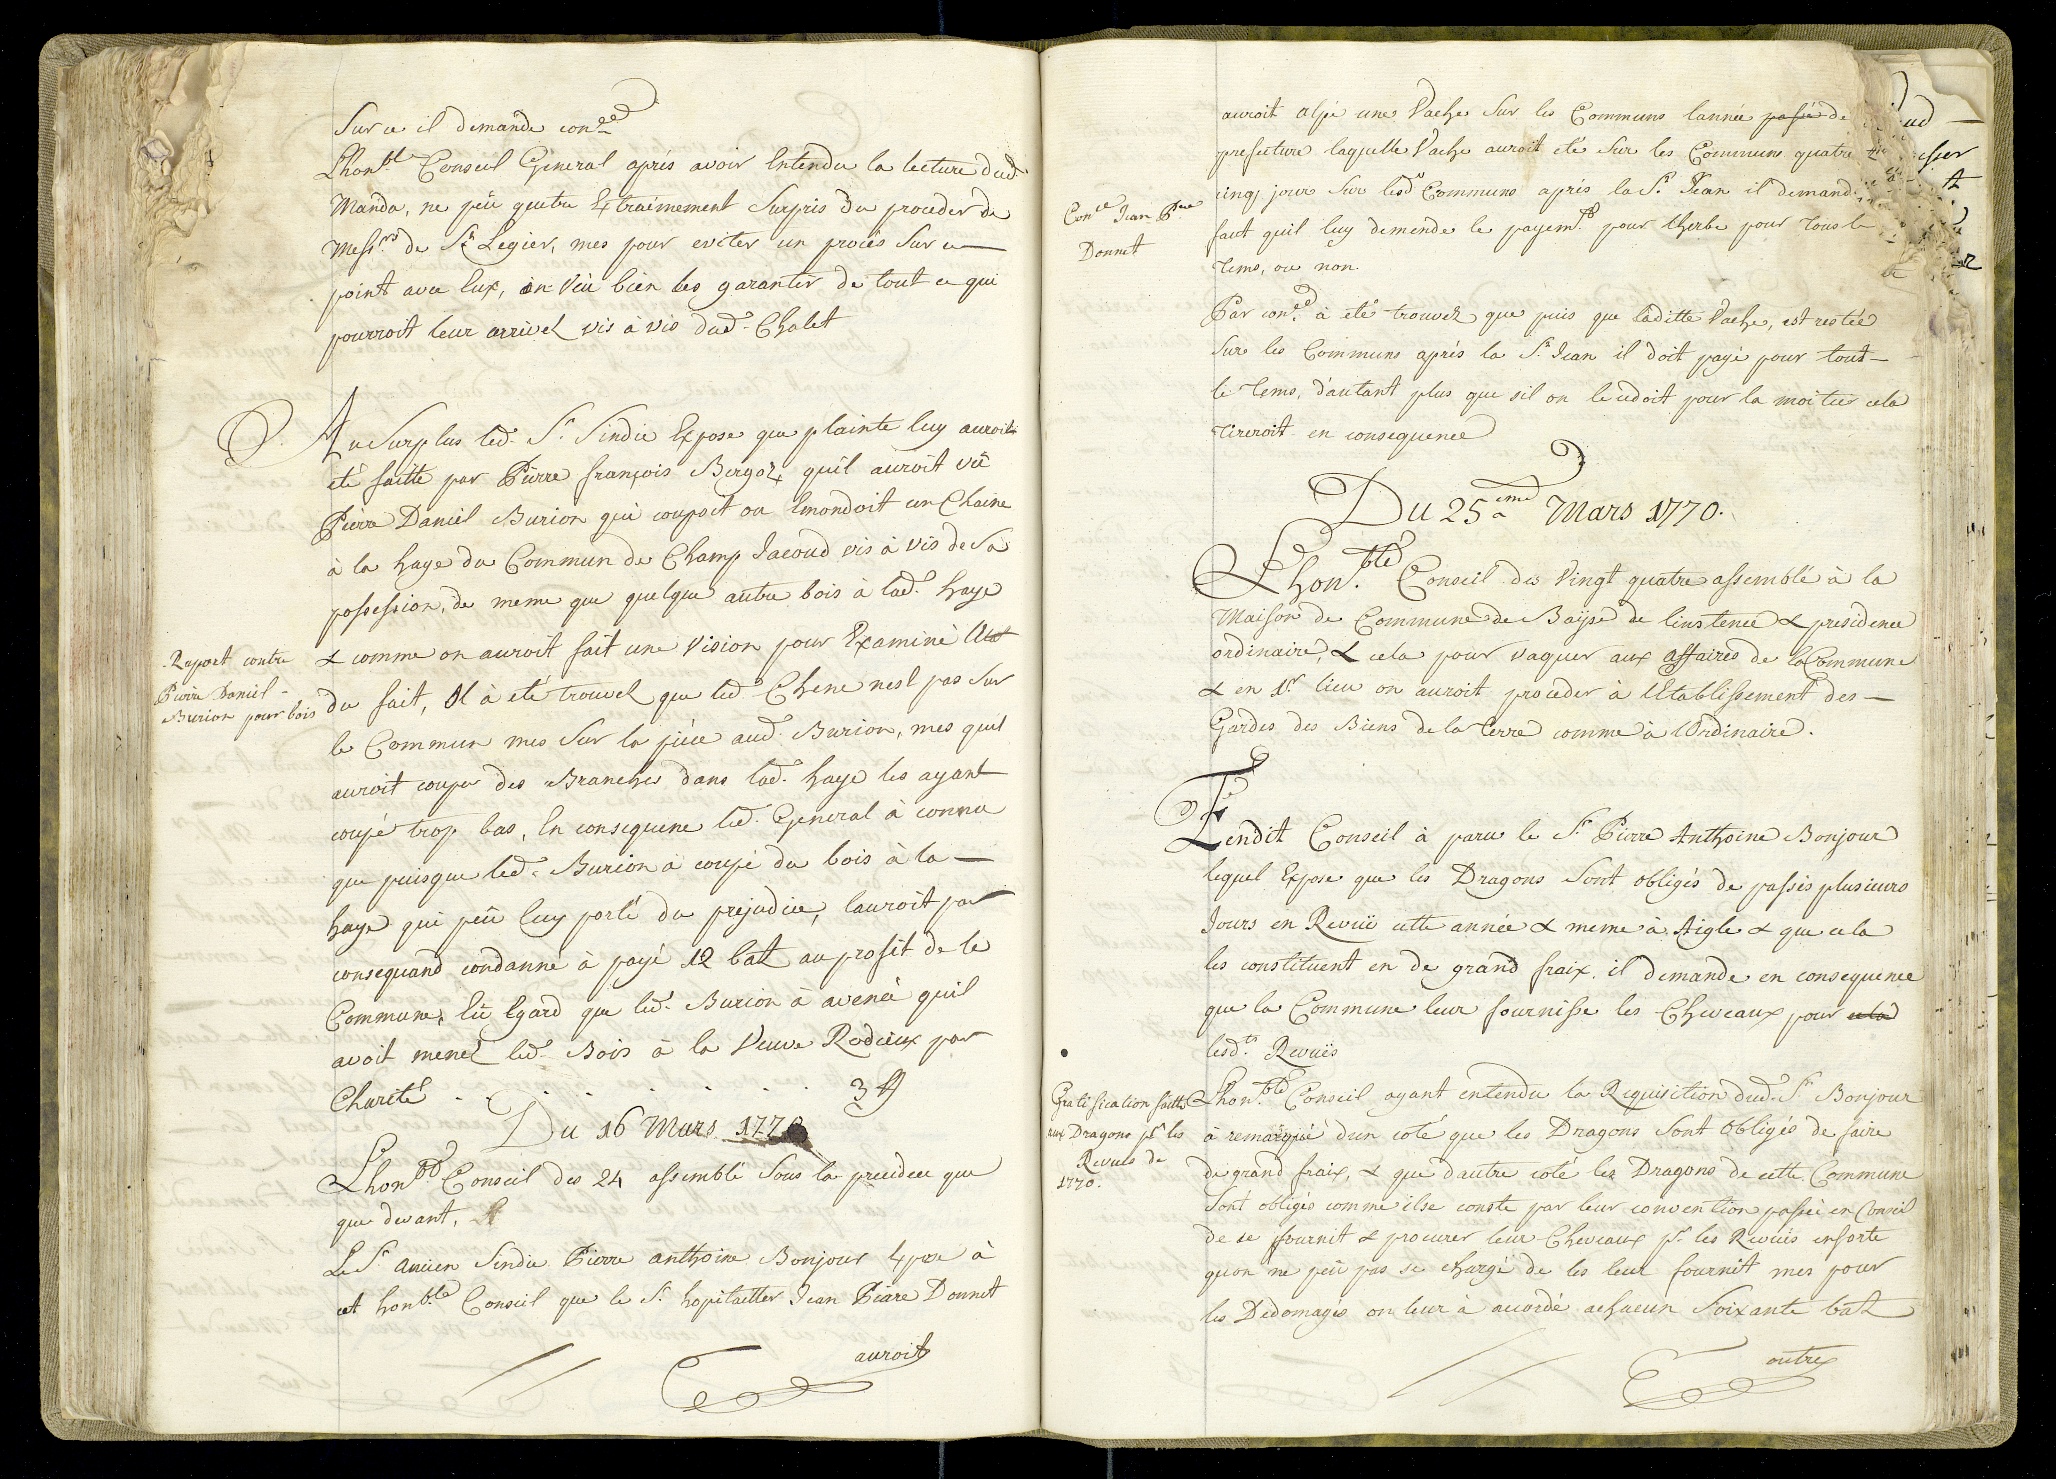 Sur ce il demande con.ce
Lhon.ble Conseil General aprés avoir Entendu la lecture dud.
Manda, ne peü qeutre Extraémement Surpris du proceder de
Mess.rs de S.t Legier, mes pour eviter un procés Sur ce
point avec Eux, on Veü bien les garantir de tout ce qui
pourroit leur arriver vis à vis dud. Chalet
Au Surplus led. S.r Sindic Expose que plainte luy auroit
eté faitte par Pierre françois Bergoz, quil auroit vü
Pierre Daniel Burion qui coupoit ou Emondoit un Chaine
à la haye du Commun de Champ Jacoud vis à vis de Sa
possession, de meme que quelque autre bois à lad. haye
Raport contre
Pierre Daniel
Burion pour bois
& comme on auroit fait une Vision pour Examiné
du fait, Il à eté trouvez que led. Chene nest pas Sur
le Commun mes Sur la piéce aud. Burion, mes quil
auroit couper des Branches dans lad. haye les ayant
coupé trop bas, En consequene led. General à connu
que puisque led. Burion à coupé du bois à la
haye qui peü luy porté du prejudice, lauroit par
consequand condanné à payé 12 batz au profit de la
Commune, Eü Egard que led. Burion à avenée quil
avoit menez led. Bois à la Veuve Rodieux par
Charité . . . . . . . 3 ff
Du 16 Mars 1770
Lhon.ble Conseil des 24 assemblé Sous la presidece que
que devant.
Le S.r Ancien Sindic Pierre anthoine Bonjour Expose à
cet honb.le Conseil que le S.r hopitaitter Jean Piere Donnet
auroit
auroit alpé une Vache Sur les Communs lannée passée de
prefecture laquelle Vache auroit eté Sur les Communs quatre
cinq jours Sur lesd. Communs aprés la S.t Jean il demand
Con.ce Jean P.re
Donnet
faut quil luy demende le payem.t pour lherbe pour Tous le
Tems, ou non.
Par con.ce à eté trouvez que puis que laditte Vache, est restée
Sur les Communs aprés la S.t Jean il doit payé pour tout
le Tems, d'autant plus que sil on le cedoit pour la moitiee cela
Tireroit en consequence
Du 25.eme Mars 1770.
Lhon.ble Conseil des Vingt quatre assemblé à la
Maison de Commune de Baÿse de linstence & presidence
ordinaire, & cela pour vaquer aux affaires de la Commune
& en 1.r lieu on auroit proceder à lEtablissement des
Gardes des Biens de la Terre comme à lOrdinaire.
Eendit Conseil à paru le S.r Pierre Anthoine Bonjour
lequel Expose que les Dragons Sont obligés de passés plusieurs
Jours en Revüe cette année & meme à Aigle & que cela
les constituent en de grand fraix. il demande en consequence
que la Commune leur fournisse les Cheveaux pour cela
lesd.tes Revuës
Gratification faitte
aux Dragons p.r les
Revues de
1770.
Lhon.ble Conseil ayant entendu la Requisition dud. S.r Bonjour
à remarqué dun coté que les Dragons Sont Obligés de faire
de grand fraix, & que dautre coté les Dragons de cette Commune
Sont obligés comme ilse conste par leur convention passée en Conseil
de se fournit & procurer leur Cheveaux p.r les Revuës ensorte
quon ne peü pas se chargé de les leur fournit mes pour
les Dédomagés on leur à accordé achacun Soixante batz
outre